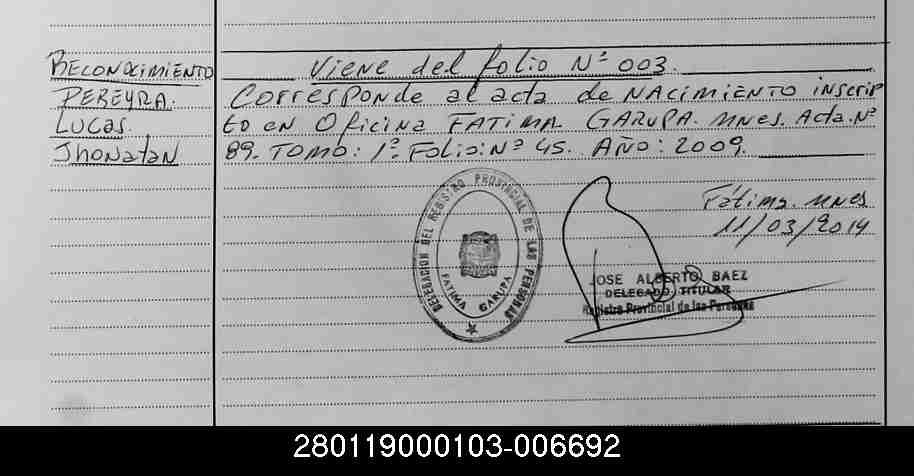 RECONOCIMIENTO
PEREYRA.
LUCAS.
Jhonatan
Viene del folio Nº 003.
Corresponde al acta de NACIMIENTO inscrip
to en Oficina FATIMA GARUPA. MNES. Acta. Nº
89. TOMO: 1º. FOLIO: Nº 45. AÑO: 2009.
Fátima. MNES
11/03/2014
DELEGACION DEL REGISTRO PROVINCIAL DE LAS PERSONAS
FATIMA GARUPA
JOSE ALBERTO BAEZ
DELEGADO TITULAR
Registro Provincial de las Personas
280119000103-006692